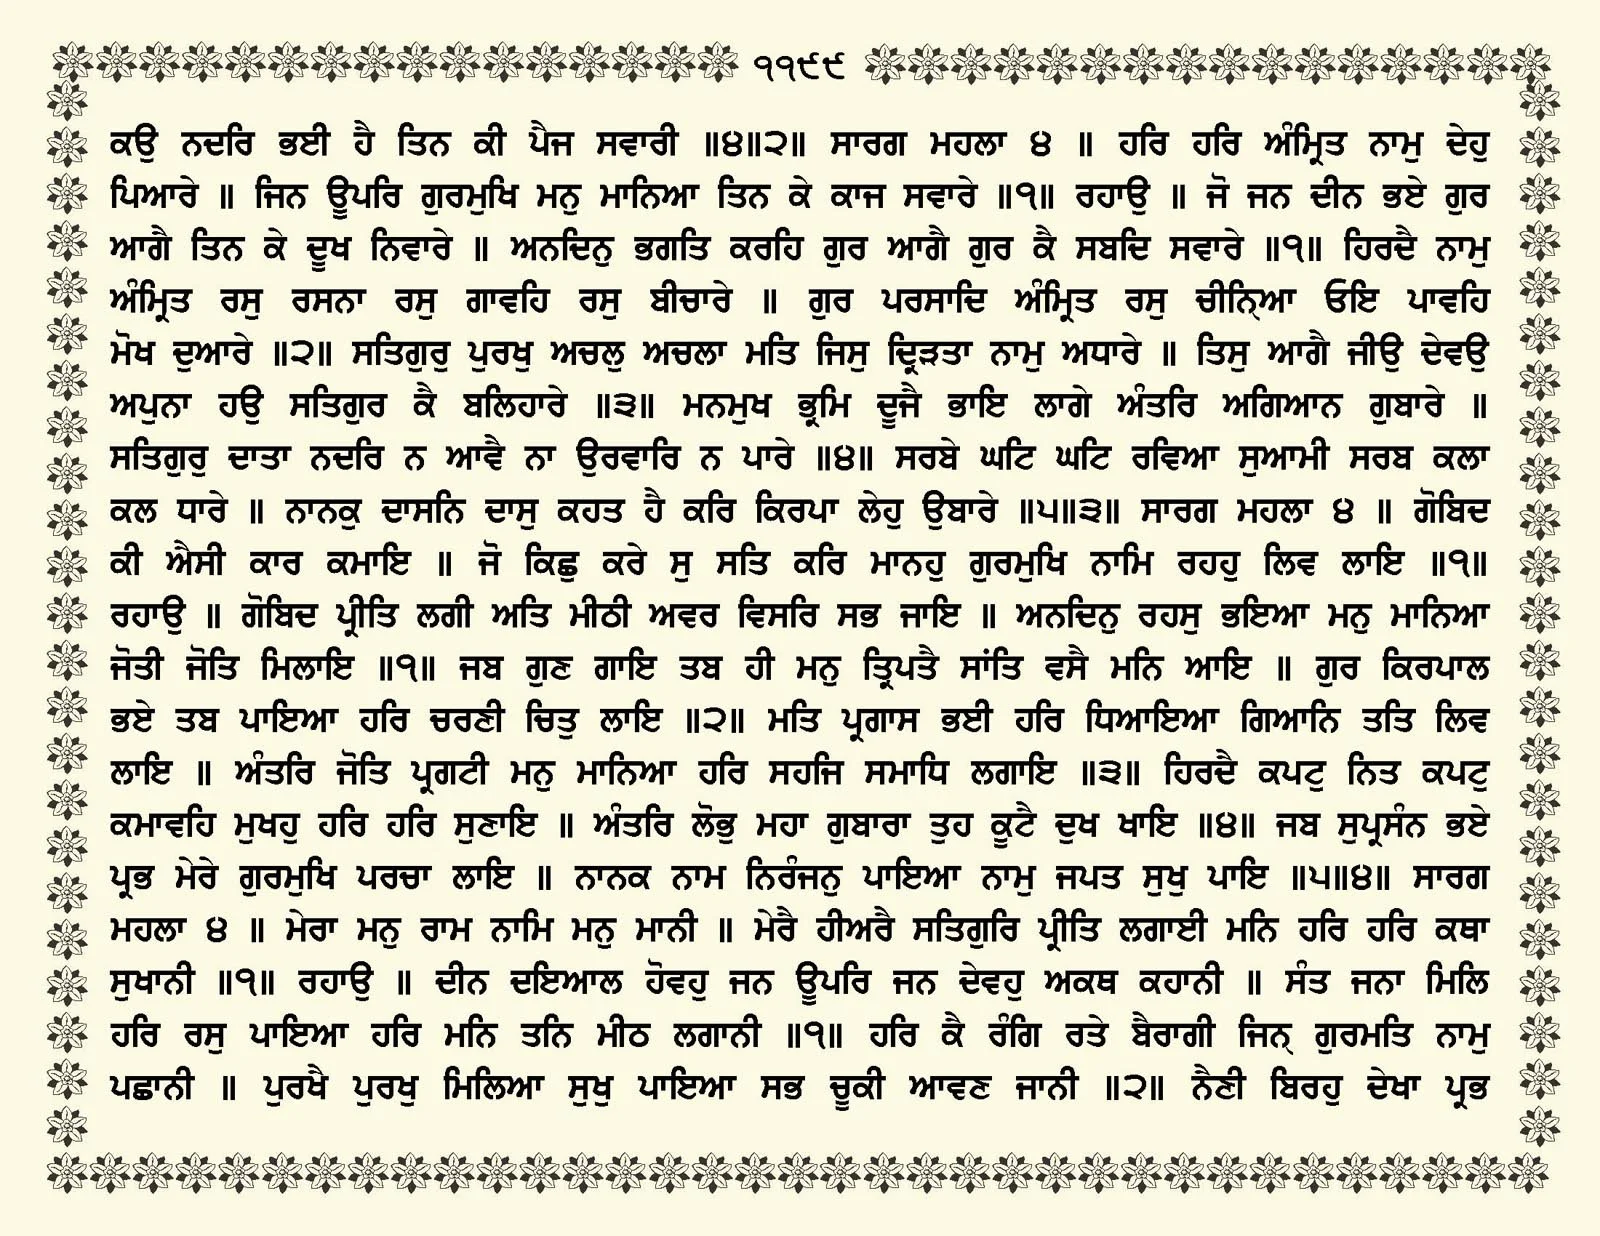 ੧੧੯੯
ਕਉ ਨਦਰਿ ਭਈ ਹੈ ਤਿਨ ਕੀ ਪੈਜ ਸਵਾਰੀ ॥੪॥੨॥ ਸਾਰਗ ਮਹਲਾ ੪ ॥ ਹਰਿ ਹਰਿ ਅੰਮ੍ਰਿਤ ਨਾਮੁ ਦੇਹੁ
ਪਿਆਰੇ ॥ ਜਿਨ ਊਪਰਿ ਗੁਰਮੁਖਿ ਮਨੁ ਮਾਨਿਆ ਤਿਨ ਕੇ ਕਾਜ ਸਵਾਰੇ ॥੧॥ ਰਹਾਉ ॥ ਜੋ ਜਨ ਦੀਨ ਭਏ ਗੁਰ
ਆਗੈ ਤਿਨ ਕੇ ਦੂਖ ਨਿਵਾਰੇ ॥ ਅਨਦਿਨੁ ਭਗਤਿ ਕਰਹਿ ਗੁਰ ਆਗੈ ਗੁਰ ਕੈ ਸਬਦਿ ਸਵਾਰੇ ॥੧॥ ਹਿਰਦੈ ਨਾਮੁ
ਅੰਮ੍ਰਿਤ ਰਸੁ ਰਸਨਾ ਰਸੁ ਗਾਵਹਿ ਰਸੁ ਬੀਚਾਰੇ ॥ ਗੁਰ ਪਰਸਾਦਿ ਅੰਮ੍ਰਿਤ ਰਸੁ ਚੀਨ੍ਹਿਆ ਓਇ ਪਾਵਹਿ
ਮੋਖ ਦੁਆਰੇ ॥੨॥ ਸਤਿਗੁਰੁ ਪੁਰਖੁ ਅਚਲੁ ਅਚਲਾ ਮਤਿ ਜਿਸੁ ਦ੍ਰਿੜਤਾ ਨਾਮੁ ਅਧਾਰੇ ॥ ਤਿਸੁ ਆਗੈ ਜੀਉ ਦੇਵਉ
ਅਪੁਨਾ ਹਉ ਸਤਿਗੁਰ ਕੈ ਬਲਿਹਾਰੇ ॥੩॥ ਮਨਮੁਖ ਭ੍ਰਮਿ ਦੂਜੈ ਭਾਇ ਲਾਗੇ ਅੰਤਰਿ ਅਗਿਆਨ ਗੁਬਾਰੇ ॥
ਸਤਿਗੁਰੁ ਦਾਤਾ ਨਦਰਿ ਨ ਆਵੈ ਨਾ ਉਰਵਾਰਿ ਨ ਪਾਰੇ ॥੪॥ ਸਰਬੇ ਘਟਿ ਘਟਿ ਰਵਿਆ ਸੁਆਮੀ ਸਰਬ ਕਲਾ
ਕਲ ਧਾਰੇ ॥ ਨਾਨਕੁ ਦਾਸਨਿ ਦਾਸੁ ਕਹਤ ਹੈ ਕਰਿ ਕਿਰਪਾ ਲੇਹੁ ਉਬਾਰੇ ॥੫॥੩॥ ਸਾਰਗ ਮਹਲਾ ੪ ॥ ਗੋਬਿਦ
ਕੀ ਐਸੀ ਕਾਰ ਕਮਾਇ ॥ ਜੋ ਕਿਛੁ ਕਰੇ ਸੁ ਸਤਿ ਕਰਿ ਮਾਨਹੁ ਗੁਰਮੁਖਿ ਨਾਮਿ ਰਹਹੁ ਲਿਵ ਲਾਇ ॥੧॥
ਰਹਾਉ ॥ ਗੋਬਿਦ ਪ੍ਰੀਤਿ ਲਗੀ ਅਤਿ ਮੀਠੀ ਅਵਰ ਵਿਸਰਿ ਸਭ ਜਾਇ ॥ ਅਨਦਿਨੁ ਰਹਸੁ ਭਇਆ ਮਨੁ ਮਾਨਿਆ
ਜੋਤੀ ਜੋਤਿ ਮਿਲਾਇ ॥੧॥ ਜਬ ਗੁਣ ਗਾਇ ਤਬ ਹੀ ਮਨੁ ਤ੍ਰਿਪਤੈ ਸਾਂਤਿ ਵਸੈ ਮਨਿ ਆਇ ॥ ਗੁਰ ਕਿਰਪਾਲ
ਭਏ ਤਬ ਪਾਇਆ ਹਰਿ ਚਰਣੀ ਚਿਤੁ ਲਾਇ ॥੨॥ ਮਤਿ ਪ੍ਰਗਾਸ ਭਈ ਹਰਿ ਧਿਆਇਆ ਗਿਆਨਿ ਤਤਿ ਲਿਵ
ਲਾਇ ॥ ਅੰਤਰਿ ਜੋਤਿ ਪ੍ਰਗਟੀ ਮਨੁ ਮਾਨਿਆ ਹਰਿ ਸਹਜਿ ਸਮਾਧਿ ਲਗਾਇ ॥੩॥ ਹਿਰਦੈ ਕਪਟੁ ਨਿਤ ਕਪਟੁ
ਕਮਾਵਹਿ ਮੁਖਹੁ ਹਰਿ ਹਰਿ ਸੁਣਾਇ ॥ ਅੰਤਰਿ ਲੋਭੁ ਮਹਾ ਗੁਬਾਰਾ ਤੁਹ ਕੂਟੈ ਦੁਖ ਖਾਇ ॥੪॥ ਜਬ ਸੁਪ੍ਰਸੰਨ ਭਏ
ਪ੍ਰਭ ਮੇਰੇ ਗੁਰਮੁਖਿ ਪਰਚਾ ਲਾਇ ॥ ਨਾਨਕ ਨਾਮ ਨਿਰੰਜਨੁ ਪਾਇਆ ਨਾਮੁ ਜਪਤ ਸੁਖੁ ਪਾਇ ॥੫॥੪॥ ਸਾਰਗ
ਮਹਲਾ ੪ ॥ ਮੇਰਾ ਮਨੁ ਰਾਮ ਨਾਮਿ ਮਨੁ ਮਾਨੀ ॥ ਮੇਰੈ ਹੀਅਰੈ ਸਤਿਗੁਰਿ ਪ੍ਰੀਤਿ ਲਗਾਈ ਮਨਿ ਹਰਿ ਹਰਿ ਕਥਾ
ਸੁਖਾਨੀ ॥੧॥ ਰਹਾਉ ॥ ਦੀਨ ਦਇਆਲ ਹੋਵਹੁ ਜਨ ਊਪਰਿ ਜਨ ਦੇਵਹੁ ਅਕਥ ਕਹਾਨੀ ॥ ਸੰਤ ਜਨਾ ਮਿਲਿ
ਹਰਿ ਰਸੁ ਪਾਇਆ ਹਰਿ ਮਨਿ ਤਨਿ ਮੀਠ ਲਗਾਨੀ ॥੧॥ ਹਰਿ ਕੈ ਰੰਗਿ ਰਤੇ ਬੈਰਾਗੀ ਜਿਨ੍ ਗੁਰਮਤਿ ਨਾਮੁ
ਪਛਾਨੀ ॥ ਪੁਰਖੈ ਪੁਰਖੁ ਮਿਲਿਆ ਸੁਖੁ ਪਾਇਆ ਸਭ ਚੂਕੀ ਆਵਣ ਜਾਨੀ ॥੨॥ ਨੈਣੀ ਬਿਰਹੁ ਦੇਖਾ ਪ੍ਰਭ